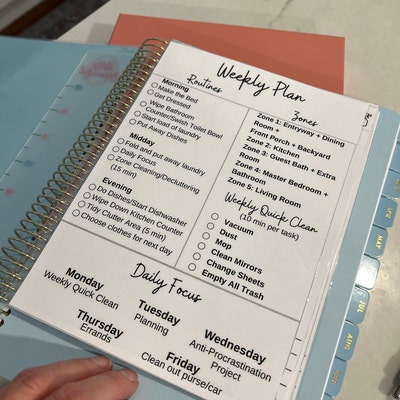 Weekly Plan
Routines
Morning
Make the Bed
Get Dressed
Wipe Bathroom
Counter/Swish Toilet Bowl
Start load of laundry
Put Away Dishes
Midday
Fold and put away laundry
Daily Focus
Zone Cleaning/Decluttering
(15 min)
Evening
Do Dishes/Start Dishwasher
Wipe Down Kitchen Counter
Tidy Clutter Area (5 min)
Choose clothes for next day
Zones
Zone 1: Entryway + Dining
Room +
Front Porch + Backyard
Zone 2: Kitchen
Zone 3: Guest Bath + Extra
Room
Zone 4: Master Bedroom +
Bathroom
Zone 5: Living Room
Weekly Quick Clean
(10 min per task)
Vacuum
Dust
Mop
Clean Mirrors
Change Sheets
Empty All Trash
Daily Focus
Monday
Weekly Quick Clean
Tuesday
Planning
Wednesday
Anti-Procrastination
Project
Thursday
Errands
Friday
Clean out purse/car
APR
MAY
JUL
AUG